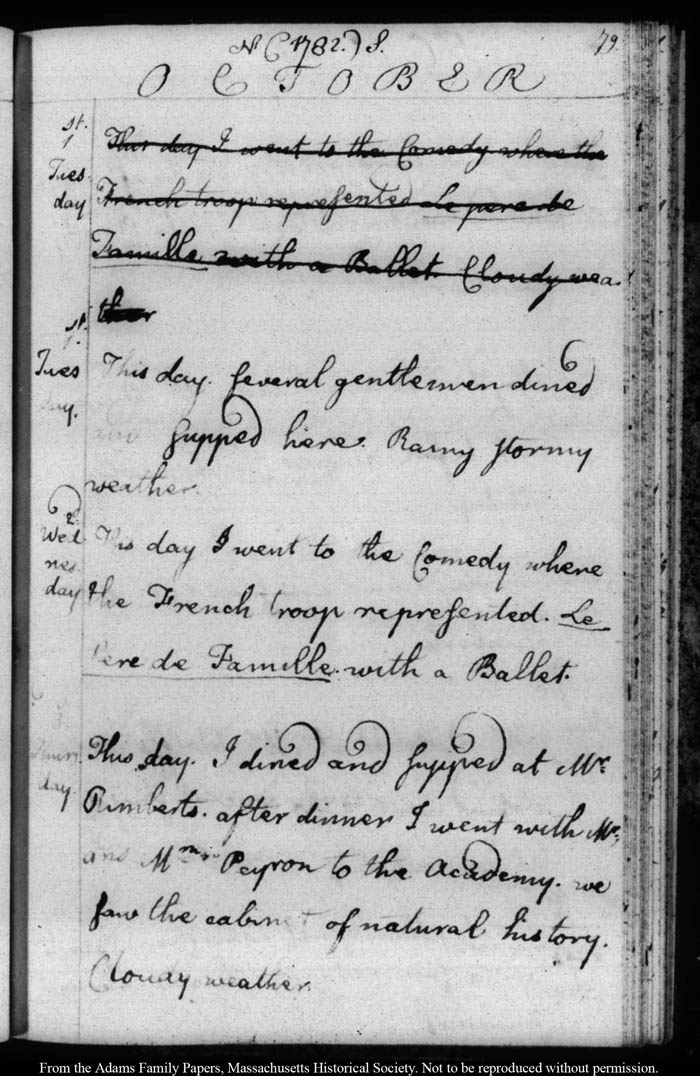 N (1782.) S. 79.
OCTOBER
st.
1
Tues
day
This day I went to the Comedy where the
French troop represented Le pere de
Famille with a Ballet. Cloudy wea
ther
st.
1.
Tues
day.
This day. several gentlemen dined
and supped here. Rainy stormy
weather.
2d
Wed
nes
day
This day I went to the Comedy where
the French troop represented. Le
Pere de Famille. with a Ballet.
3
Thurs
day.
This day. I dined and supped at Mr.
Rimberts. after dinner I went with Mr.
and Mme. Peyron to the Academy. we
saw the cabinet of natural history.
Cloudy weather.
From the Adams Family Papers, Massachusetts Historical Society. Not to be reproduced without permission.